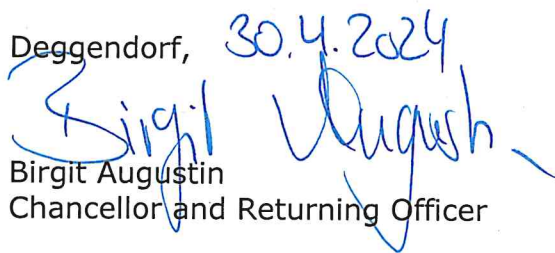 Deggendorf, 30.4.2024
Birgit Augustin
Birgit Augustin
Chancellor and Returning Officer